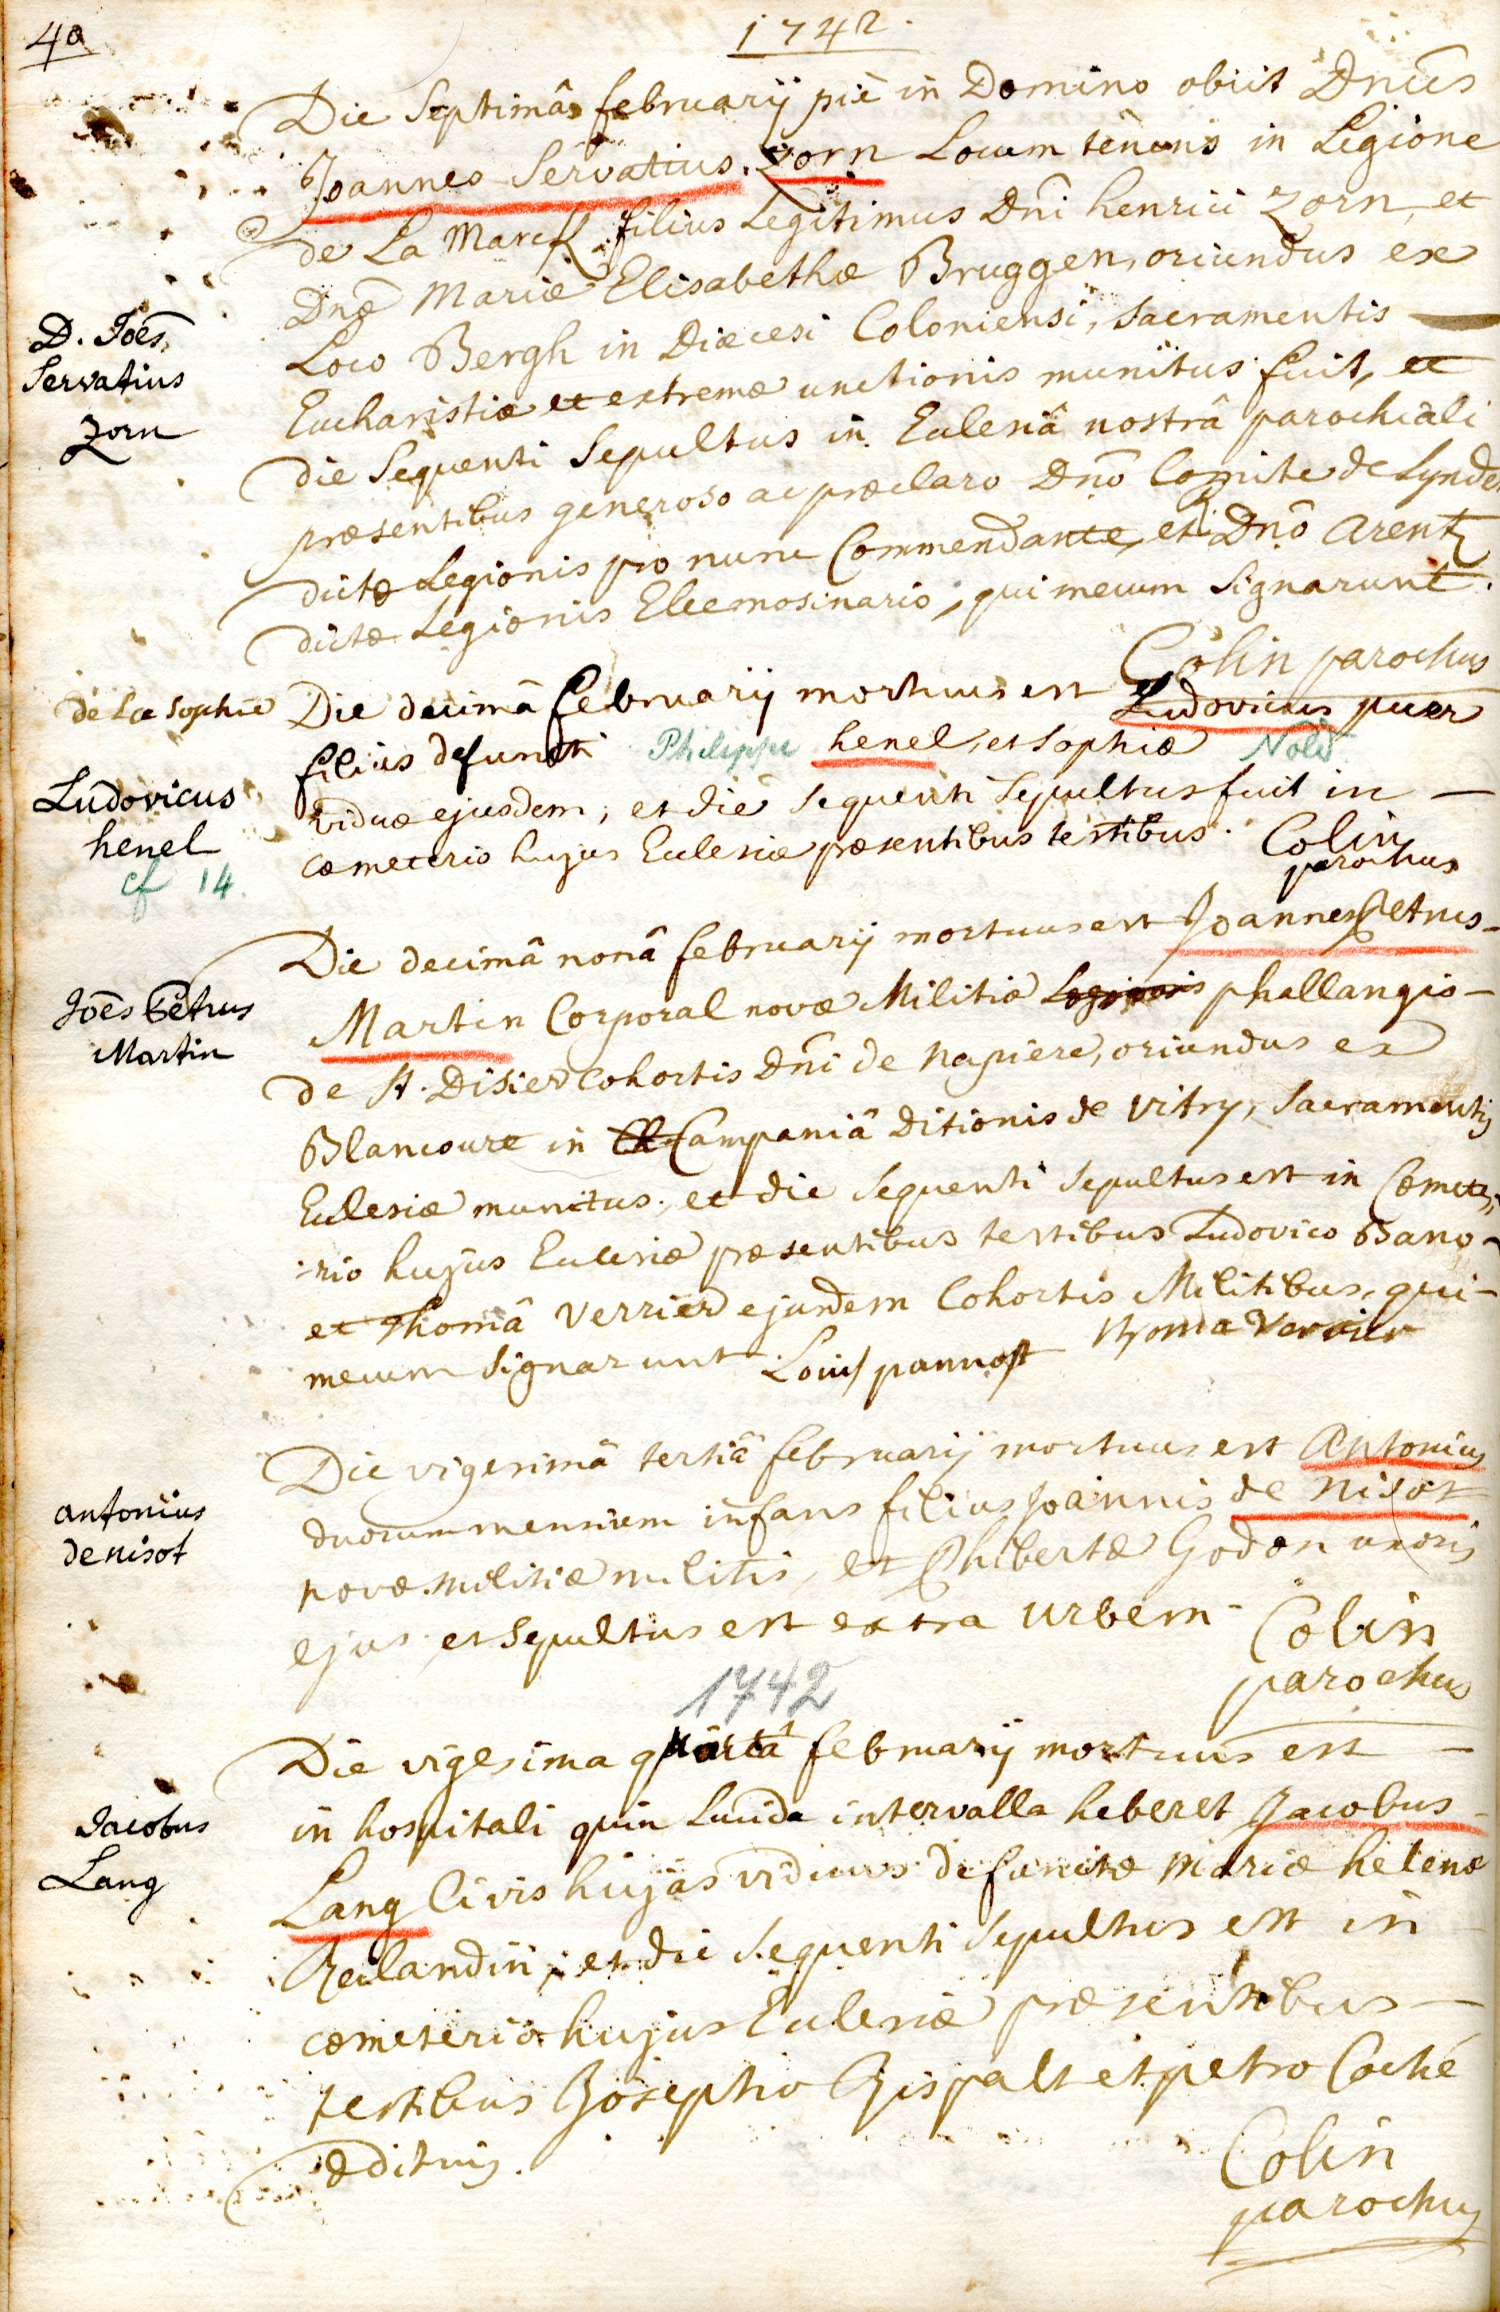 40
1742.
Die Septimâ februarij piè in Domino obiit Dnûs
Joannes Servatius Zorn Locum tenens in Legione
de La Marck filius Legitimus Dnî henrici Zorn, et
Dnæ Mariæ Elisabethæ Bruggen, oriundus ex
Loco Bergh in Diœcesi Coloniensi, Sacramentis
D. Joês
Servatius
Zorn
Eucharistiæ et extremæ unctionis munitus fuit, et
die Sequenti Sepultus in Eclesiâ nostrâ parochiali
præsentibus generoso ac præclaro Dnô Comite de Lynden
dictæ Legionis pro nunc Commendante, et Dnô Arentz
dictæ Legionis Eleemosinario, qui mecum Signarunt.
Colin parochus
de La Sophie
Die decimâ februarij mortuus est Ludovicus puer
filius defuncti Philippe henel, et Sophiæ Nold
Ludovicus
henel
cf 14.
viduæ ejusdem, et die sequenti Sepultus fuit in
cœmeterio hujus Eclesiæ præsentibus testibus. Colin
parochus
Die decimâ nonâ februarij mortuus est Joannes Petrus
Joês Petrus
Martin
Martin Corporal novæ Militiæ Legionis phallangis
de St. Disier Cohortis Dnî de Napiere, oriundus ex
Blancourt in Campaniâ Ditionis de Vitry, Sacramentis
Eclesiæ munitus, et die Sequenti Sepultus est in Cœmete,
:rio hujus Eclesiæ præsentibus testibus Ludovico Bano
et Thomâ Verrier ejusdem Cohortis Militibus, qui
mecum Signarunt Louis pannost thoma Verrier
Die vigesimâ tertiâ februarij mortuus est Antonius
antonius
de nisot
duorum mensium infans filius Joannis de Nisot
novæ militiæ militis, et Phibertæ Godon uxoris
ejus et Sepultus est extra urbem Colin
parochus
1742
Die vigesima quartâ februarij mortuus est
in hospitali quin Lucida intervalla heberet Jacobus
Jacobus
Lang
Lang Civis hujas viduus defunctæ Mariæ helenæ
Reilandin, et die Sequenti Sepultus est in
cœmeterio hujus Eclesiæ præsentibus
testibus Josepho Gispalt et petro Coché
ædituis.
Colin
parochus